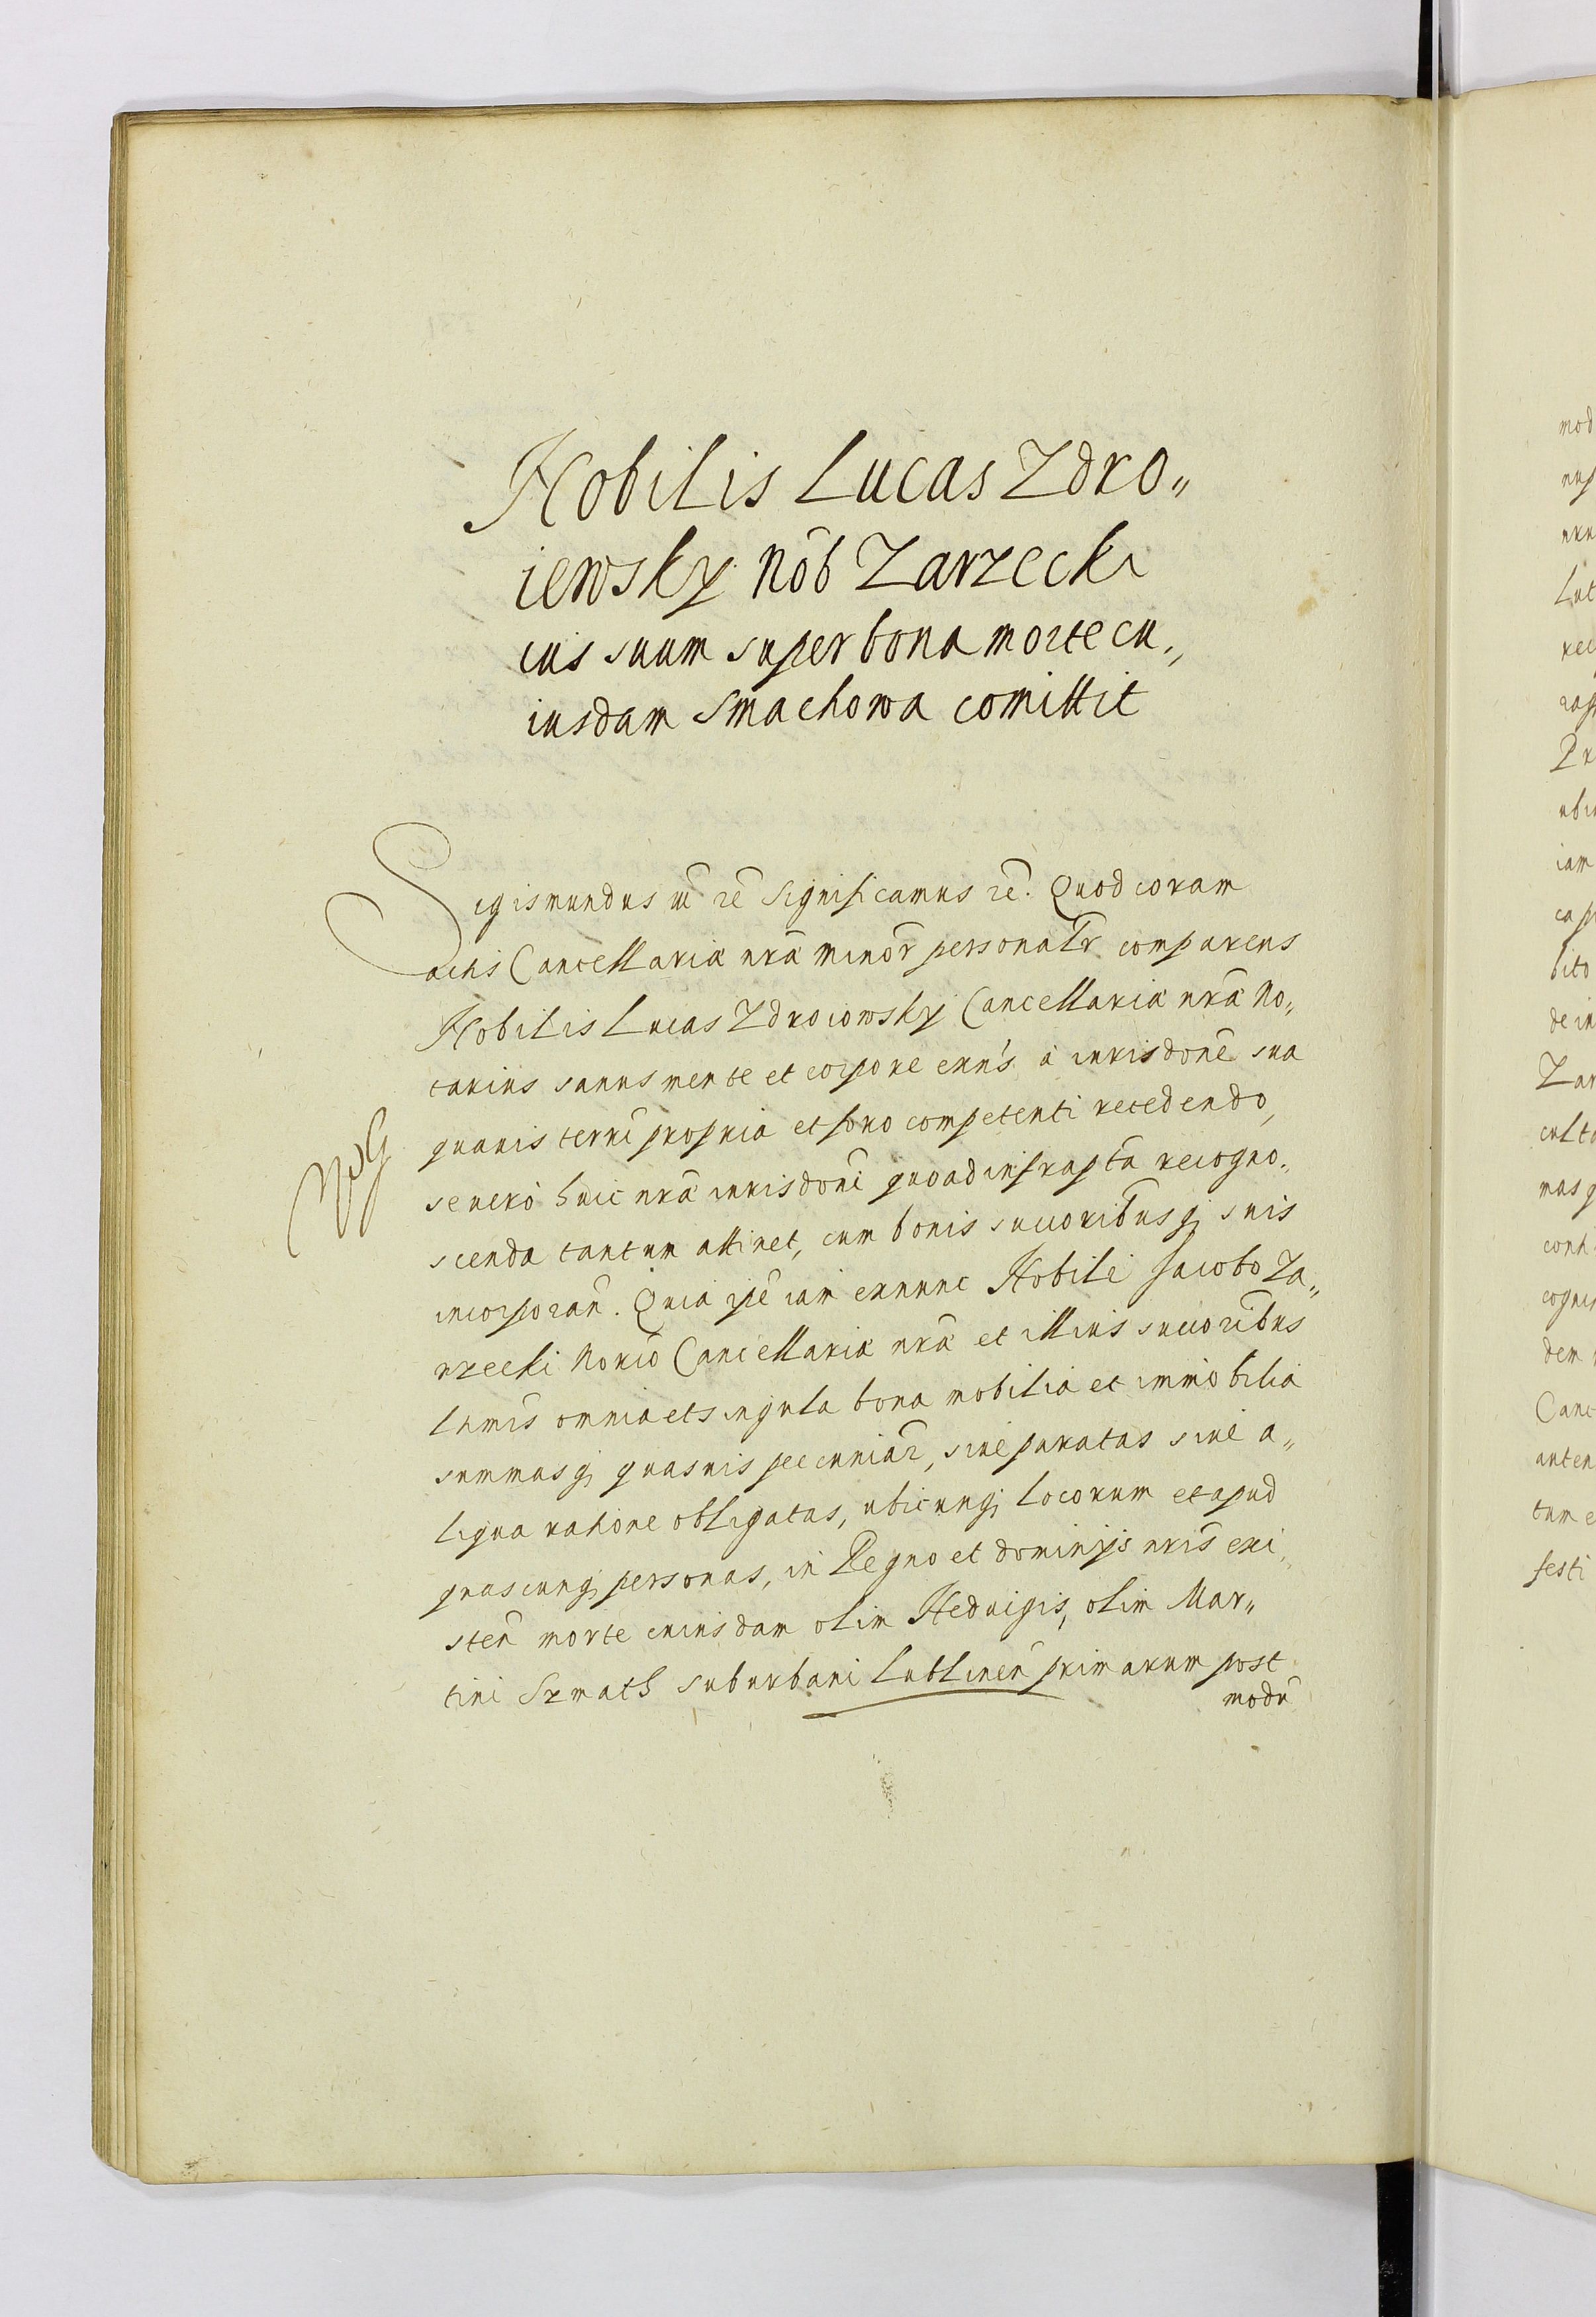 Nobilis Lucas Zdro„
iewsky Nob̃ Zarzecki
ius suum super bona morte cu„
iusdam Smachowa comittit
Sigismundus III rẽ significamus rẽ. Quod coram
actis Cancellariæ nrã minõr personalr̃ comparens
Nobilis Lucas Zdroiowsky Cancellariæ nrã No„
tarius sanus mente et corpore exñs à iurisdonẽ sua
quauis terrĩ propria et foro competenti recedendo,
se uerò huic nrã iurisdonĩ quoad infraptã recogno„
scenda tantum attinet, cum bonis succoribusq; suis
incorporañ. Quia ipẽ iam exnunc Nobili Jacobo Za„
rzecki Norio Cancellariæ nrã et illius succoribus
ltmis omnia et singula bona mobilia et immobilia
summasq; quasuis pecuniar̃, siue paratas siue a„
liqua ratione obligatas, ubicunq; locorum et apud
quascunq; personas, in Regno et dominijs nris exi„
steñ morte cuiusdam olim Heduigis, olim Mar„
tini Szmath suburbani Lublineñ primarum post
modũ
mod
Lut
rec
Pr
ubi
iam
bito
de in
Zar
culta
mas q
cogni
dem
Canc
auten
tum e
festi